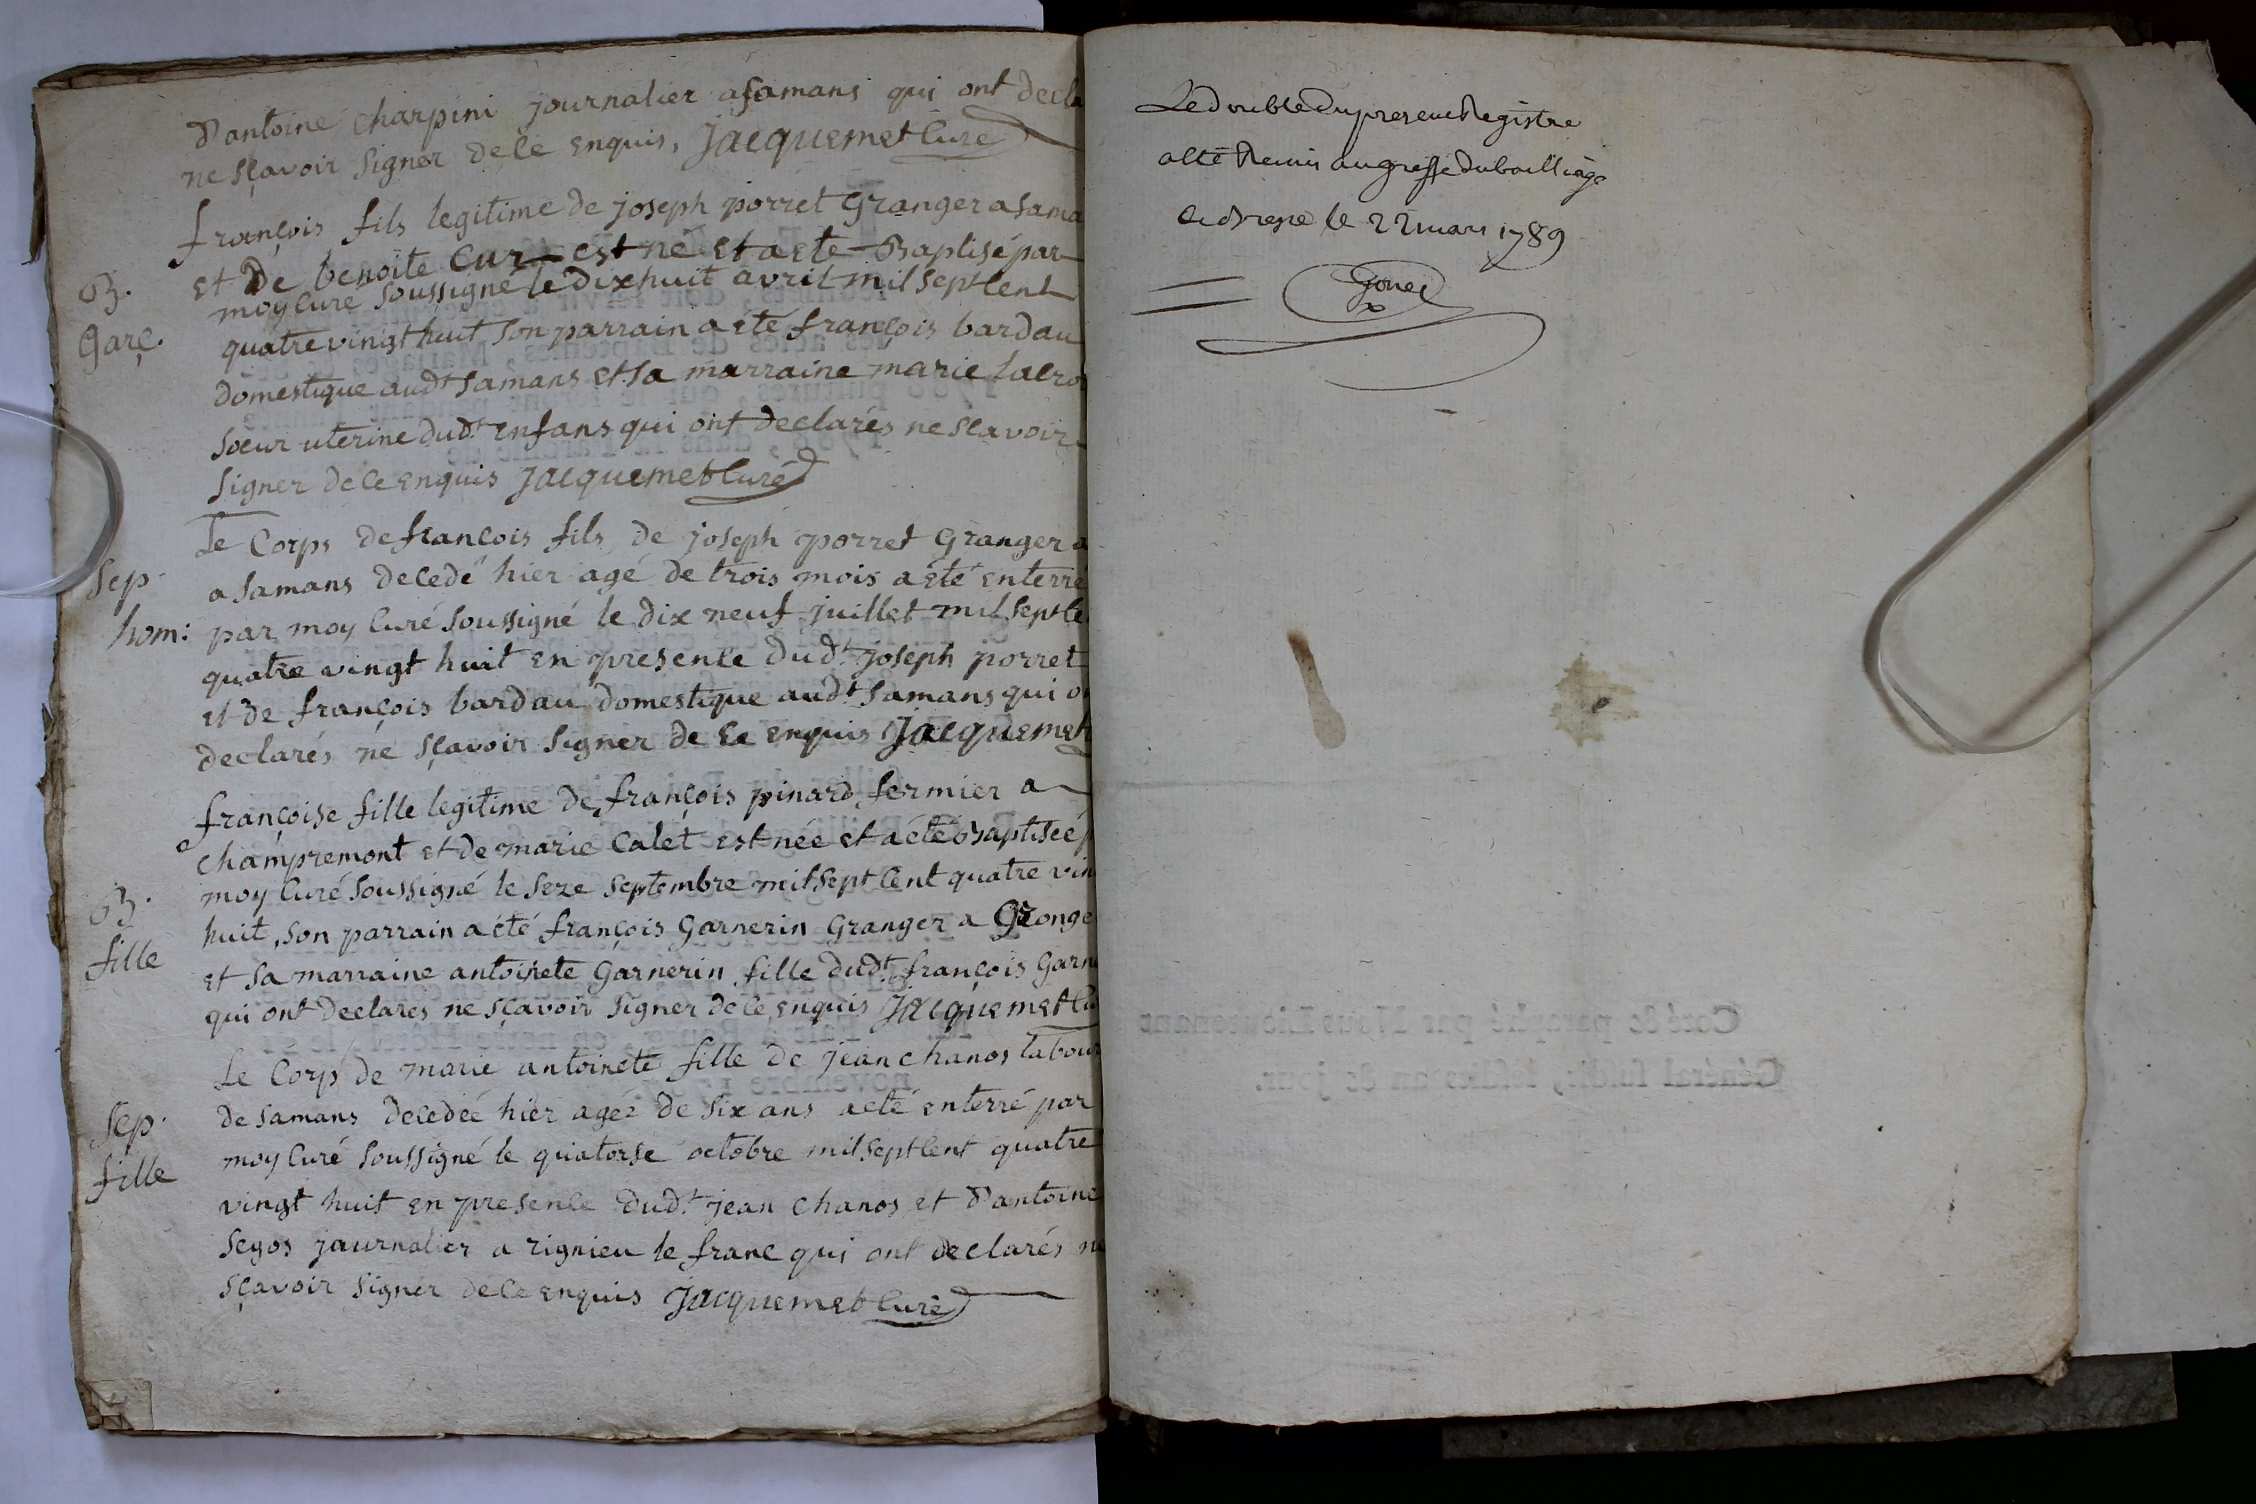 d'antoine charpini journalier a samans qui ont decla
ne sçavoir signer de ce enquis, Jacquemet Curé
françois fils legitime de joseph porret Granger a Sama
et De benoite Cur est né et a eté Baptisé par
B.
moy Curé soussigné le dixhuit avril mil sept Cent
Garç.
quatre vingt huit son parrain a eté françois bardau
domestique audt Samans et sa marraine marie Lacro
soeur uterine dudt enfans qui ont declarés ne scavoir
signer de ce enquis Jacquemet Curé
Le Corps de francois fils de joseph porret Granger a
Sep.
a Samans decedé hier agé de trois mois a eté enterré
hom:
par moy Curé soussigné le dix neuf juillet mil sept Ce
quatre vingt huit en presence dudt joseph porret
et de françois bardau domestique audt Samans qui on
declarés ne sçavoir signer de ce enquis Jacquemet
françoise fille legitime de françois pinard fermier a
champremont et de marie Calet est née et a eté Baptisée p
B.
moy Curé soussigné le seze septembre mil sept Cent quatre vin
huit, son parrain a été françois Garnerin Granger a Gronge
fille
et sa marraine antoinete Garnerin fille dudt françois Garn
qui ont declarés ne sçavoir signer de ce enquis Jacquemet Cu
Le Corps de marie antoinete fille de jean chanos labour
Sep.
de samans decedeé hier ageé de six ans a eté enterré par
fille
moy Curé soussigné le quatorse octobre mil sept Cent quatre
vingt huit en presence dudt jean chanos et d'antoine
Segos journalier a rignieu le franc qui ont declarés ne
sçavoir signer de ce enquis Jacquemet Curé
Le double du present Registre
a été Remis au greffe du bailliage
de Bresse le 22 mars 1789